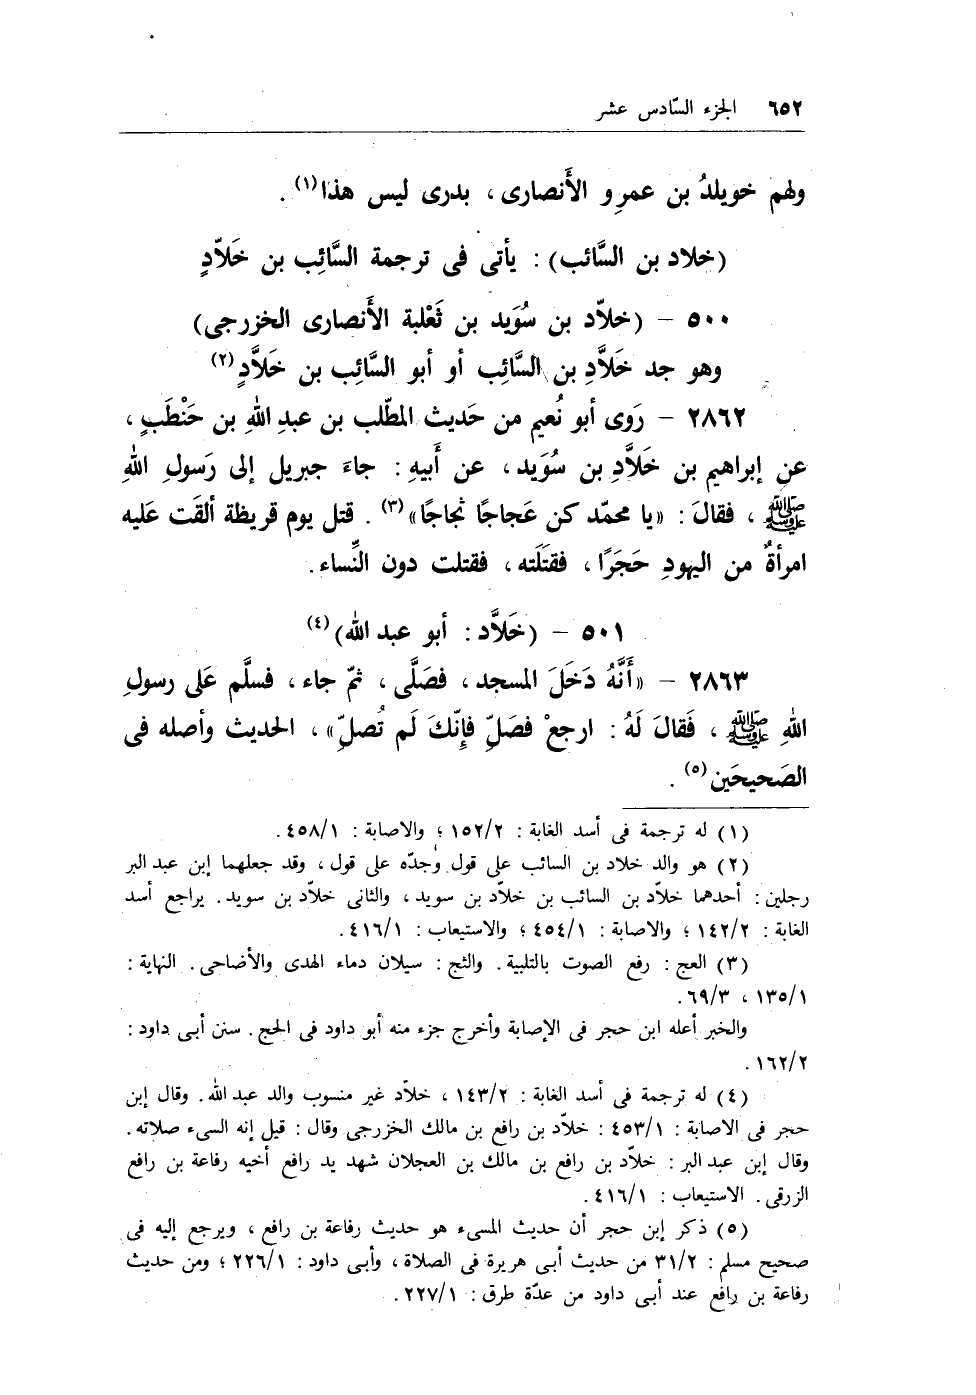 ٦٥٢ الجزء السّادس عشر
ولهم خويلدُ بن عمرِو الأَنصارى ، بدرى ليس هذا(١) .
(خلاد بن السَّائب) : يأتى فى ترجمة السَّائِب بن خَلاّدٍ
٥٠٠ – (خلاّد بن سُوَيد بن ثَعْلبة الأَنصارى الخزرجى)
وهو جد خَلاَّدِ بن السَّائِب أو أبو السَّائِب بن خَلاَّدٍ(٢)
٢٨٦٢ – رَوى أبو نُعيم من حَديث المطّلب بن عبدِ اللهِ بن حَنْطَبٍ ،
عنِ إبراهيم بن خَلاَّدِ بن سُوَيد ، عن أَبيهِ : جاءَ جبريل إلى رَسولِ اللهِ
ﷺ ، فقالَ : «يا محمّد كن عَجاجًا ثجاجًا»(٣) . قتل يوم قريظة ألقَت عَليه
امرأةٌ من اليهودِ حَجَرًا ، فقتَلَته ، فقتلت دون النِّساء .
٥٠١ – (خَلاَّد : أبو عبد الله)(٤)
٢٨٦٣ – «أَنَّهُ دَخَلَ المسجد ، فصَلَّى ، ثمّ جاء ، فسلَّم عَلى رسولِ
اللهِ ﷺ ، فَقالَ لَهُ : ارجعْ فصَلِّ فإِنّكَ لَم تُصلِّ» ، الحديث وأصله فى
الصَحيحَين(٥) .
(١) له ترجمة فى أسد الغابة : ١٥٢/٢ ؛ والاصابة : ٤٥٨/١ .
(٢) هو والد خلاد بن السائب على قول وجدّه على قول ، وقد جعلهما إبن عبد البر
رجلين : أحدهما خلاّد بن السائب بن خلاّد بن سويد ، والثانى خلاّد بن سويد . يراجع أسد
الغابة : ١٤٢/٢ ؛ والاصابة : ٤٥٤/١ ؛ والاستيعاب : ٤١٦/١ .
(٣) العج : رفع الصوت بالتلبية . والثج : سيلان دماء الهدى والأضاحى . النهاية :
١٣٥/١ ، ٦٩/٣ .
والخبر أعله ابن حجر فى الإصابة وأخرج جزء منه أبو داود فى الحج . سنن أبى داود :
١٦٢/٢ .
(٤) له ترجمة فى أسد الغابة : ١٤٣/٢ ، خلاّد غير منسوب والد عبد الله . وقال إبن
حجر فى الاصابة : ٤٥٣/١ : خلاّد بن رافع بن مالك الخزرجى وقال : قيل إنه السىء صلاته .
وقال إبن عبد البر : خلاّد بن رافع بن مالك بن العجلان شهد يد رافع أخيه رفاعة بن رافع
الزرقى . الاستيعاب : ٤١٦/١ .
(٥) ذكر إبن حجر أن حديث المسىء هو حديث رفاعة بن رافع ، ويرجع إليه فى
صحيح مسلم : ٣١/٢ من حديث أبى هريرة فى الصلاة ، وأبى داود : ٢٢٦/١ ؛ ومن حديث
رفاعة بن رافع عند أبى داود من عدّة طرق : ٢٢٧/١ .